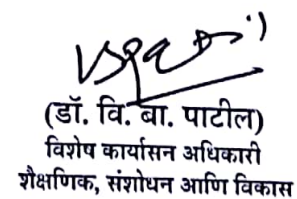 (डॉ. वि. बा. पाटील)
विशेष कार्यासन अधिकारी
शैक्षणिक, संशोधन आणि विकास